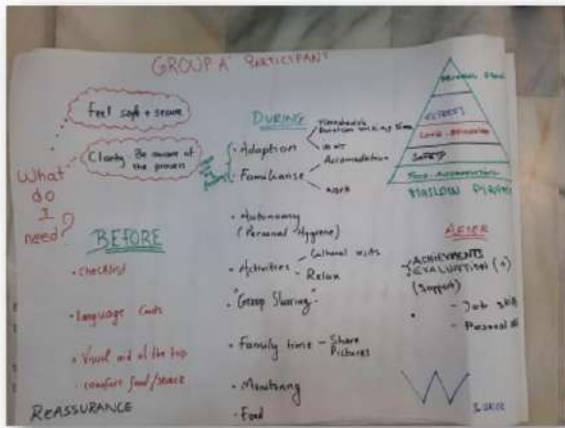 GROUP A PARTICIPANT
Feel safe + secure
Clarity Be aware
of the process
What
do
I
need?
BEFORE
• Checklist
• Language Cards
• Visual aid of the trip
• comfort food/snack
REASSURANCE
DURING
• Adaption
• Familiarise
Accomodation
work
• Autonomy
(Personal Hygiene)
• Activities
Cultural visits
Relax
• "Group Sharing"
• Family time - Share
Pictures
• Monitoring
• Food
ESTEEM
SAFETY
MASLOW PYRAM
AFTER
ACHIEVMENTS
EVALUATION (+)
(Support)
- Job skill
- Personal